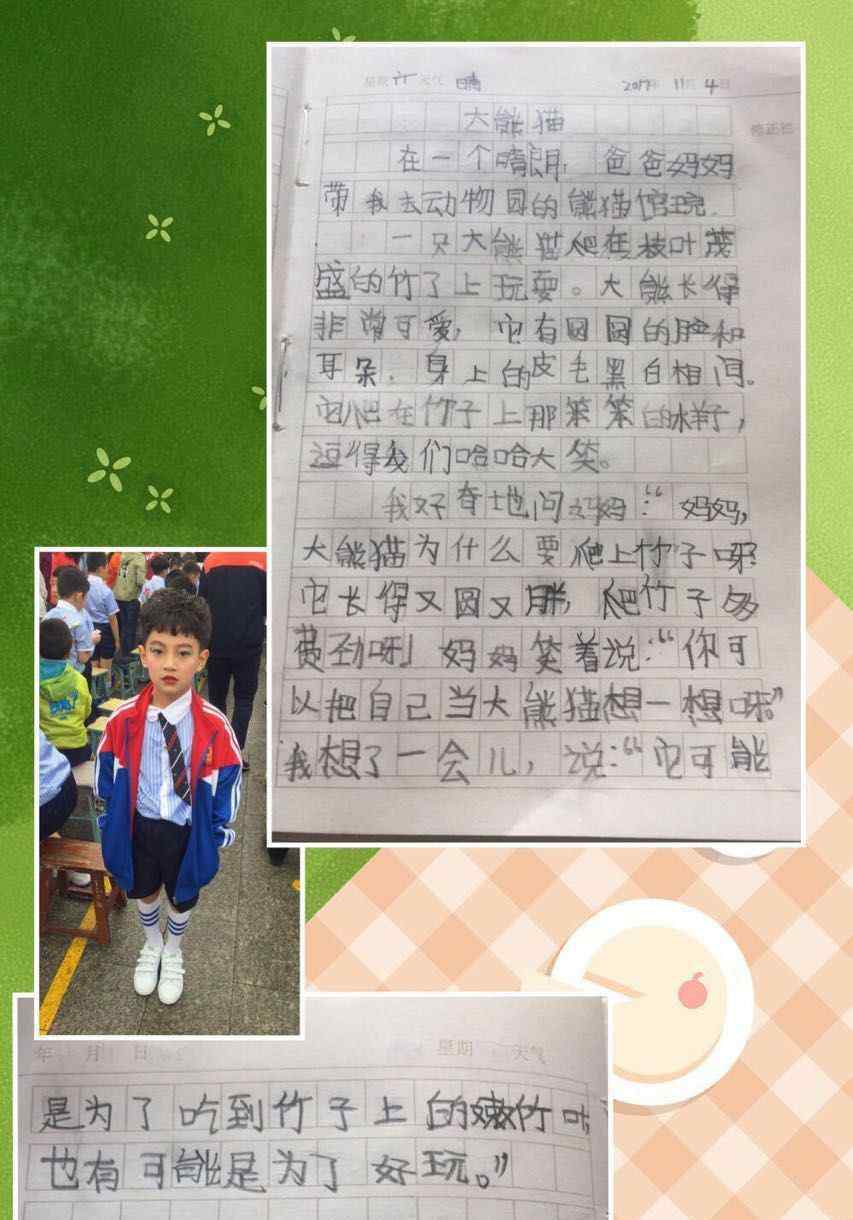 星期六 天气 晴 2017年 11月 4日
大熊猫
在一个晴朗，爸爸妈妈
带我去动物园的熊猫馆玩.
一只大熊猫爬在枝叶茂
盛的竹了上玩耍。大熊长得
非常可爱，它有圆圆的脸和
耳朵．身上的皮毛黑白相间。
它爬在竹子上那笨笨的样子，
逗得我们哈哈大笑。
我好奇地问妈妈：“妈妈，
大熊猫为什么要爬上竹子呀?
它长得又圆又胖，爬竹子多
费劲呀！妈妈笑着说：“你可
以把自己当大熊猫想一想呀。”
我想了一会儿，说：“它可能
年 月 日 星期 天气
是为了吃到竹子上的嫩竹叶
也有可能是为了好玩。”